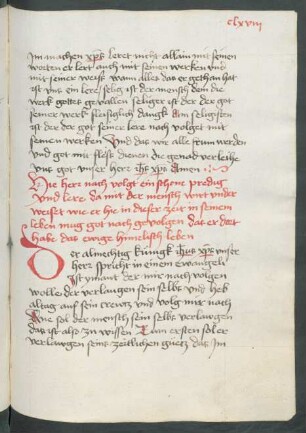 clxviii
Im machen xps leret nicht allain mit seinen
worten er lert auch mit seinen wercken und
mit seiner weiß wann alles das er gethan hat
ist uns ein lere selig ist der mensch dem die
werk gottes gevallen seliger ist der der got
seiner werk fleissiglich danck Am seligosten
ist der der got seiner lere nach volget mit
seinen wercken Und das wir alle frum werden
und got mit fleiß dienen die genad verleihe
uns got unser herr ihs xps Amen
Hie her nach volgt ein schone predig
und lere da mit der mensch wirt under
weiset wie er he in dieser zeit in seinem
leben mug got nach gevolgen das er dort
habe das ewige himelisch leben
Der almechtig kunigk ihus xps unser
herr spricht in einem ewangeli
Ist ymant der mir nach volgen
wolle der verlaugen sein selbs und heb
altag auf sein creutz und volg mir nach
Wie sol der mensch sein selbs verlaugen
das ist also zu wissen Zum ersten sol er
verlaugen seins zeitlichen guetz das Im